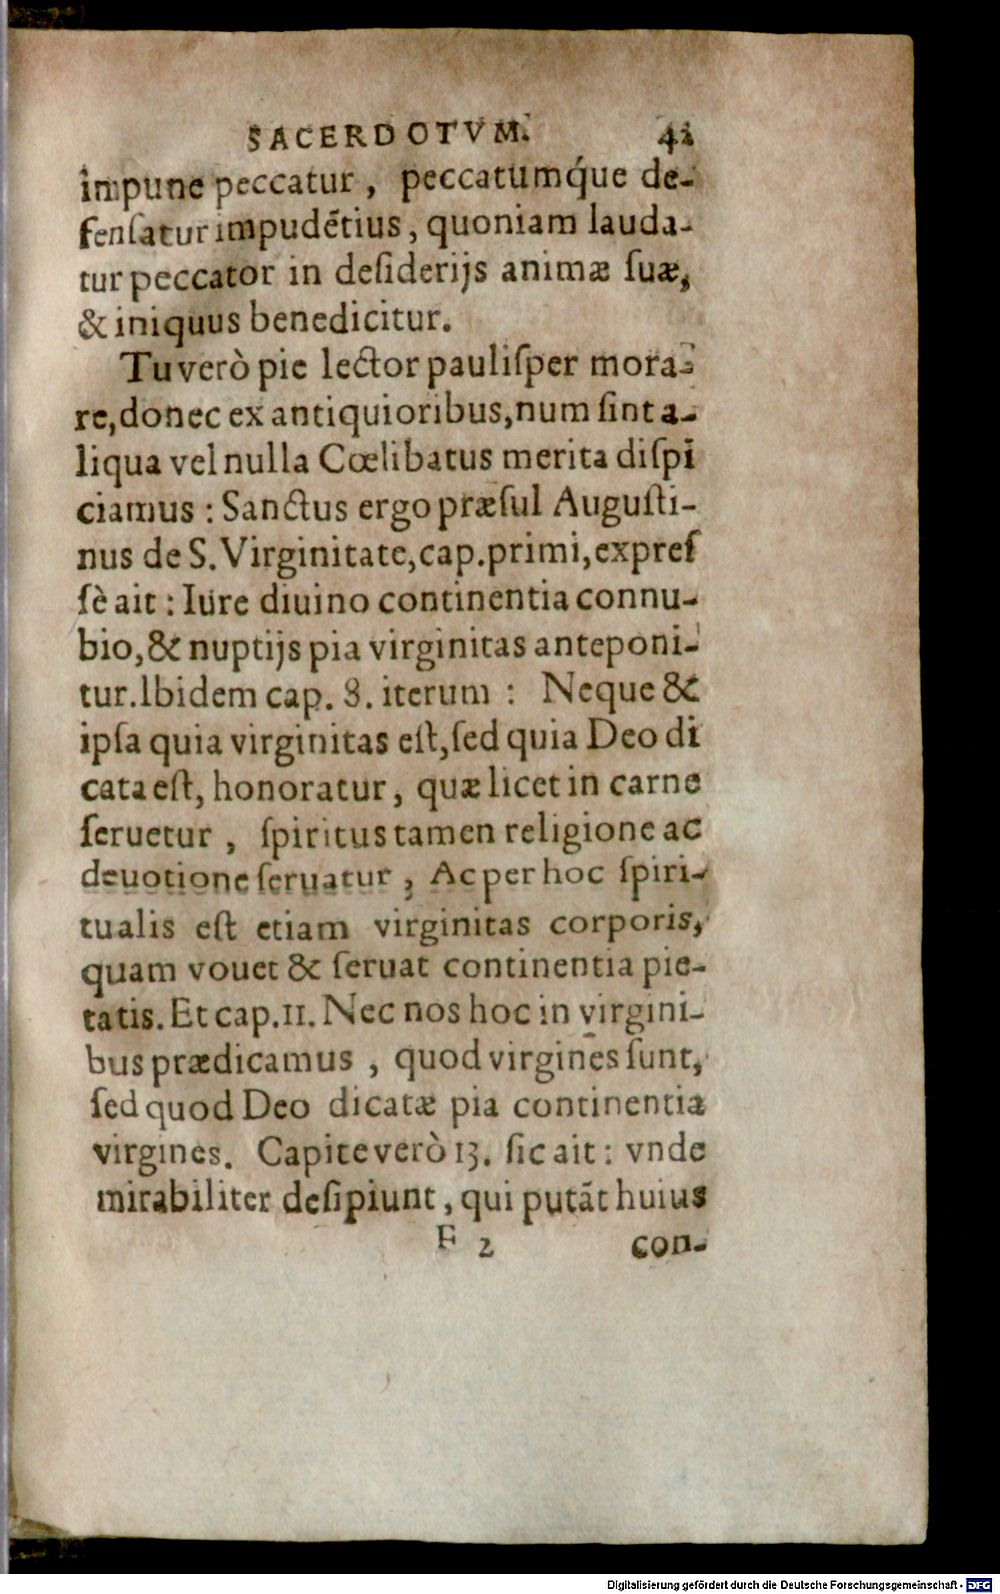 SACERDOTVM. 41
impune peccatur, peccatumq́ue de-
fenſatur impudẽtius, quoniam lauda-
tur peccator in deſiderijs animæ ſuæ,
& iniquus benedicitur.
Tu verò pie lector pauliſper mora-
re, donec ex antiquioribus, num ſint a-
liqua vel nulla Cœlibatus merita diſpi
ciamus : Sanctus ergo præſul Auguſti-
nus de S. Virginitate, cap. primi, expreſ
ſè ait : Iure diuino continentia connu-
bio, & nuptijs pia virginitas anteponi-
tur. Ibidem cap. 8. iterum : Neque &
ipſa quia virginitas eſt, ſed quia Deo di
cata eſt, honoratur, quæ licet in carne
ſeruetur, ſpiritus tamen religione ac
deuotione ſeruatur, Ac per hoc ſpiri-
tualis eſt etiam virginitas corporis,
quam vouet & ſeruat continentia pie-
tatis. Et cap. 11. Nec nos hoc in virgini-
bus prædicamus, quod virgines ſunt,
ſed quod Deo dicatæ pia continentia
virgines. Capite verò 13. ſic ait : vnde
mirabiliter deſipiunt, qui putãt huius
F 2 con-
Digitalisierung gefördert durch die Deutsche Forschungsgemeinschaft - DFG